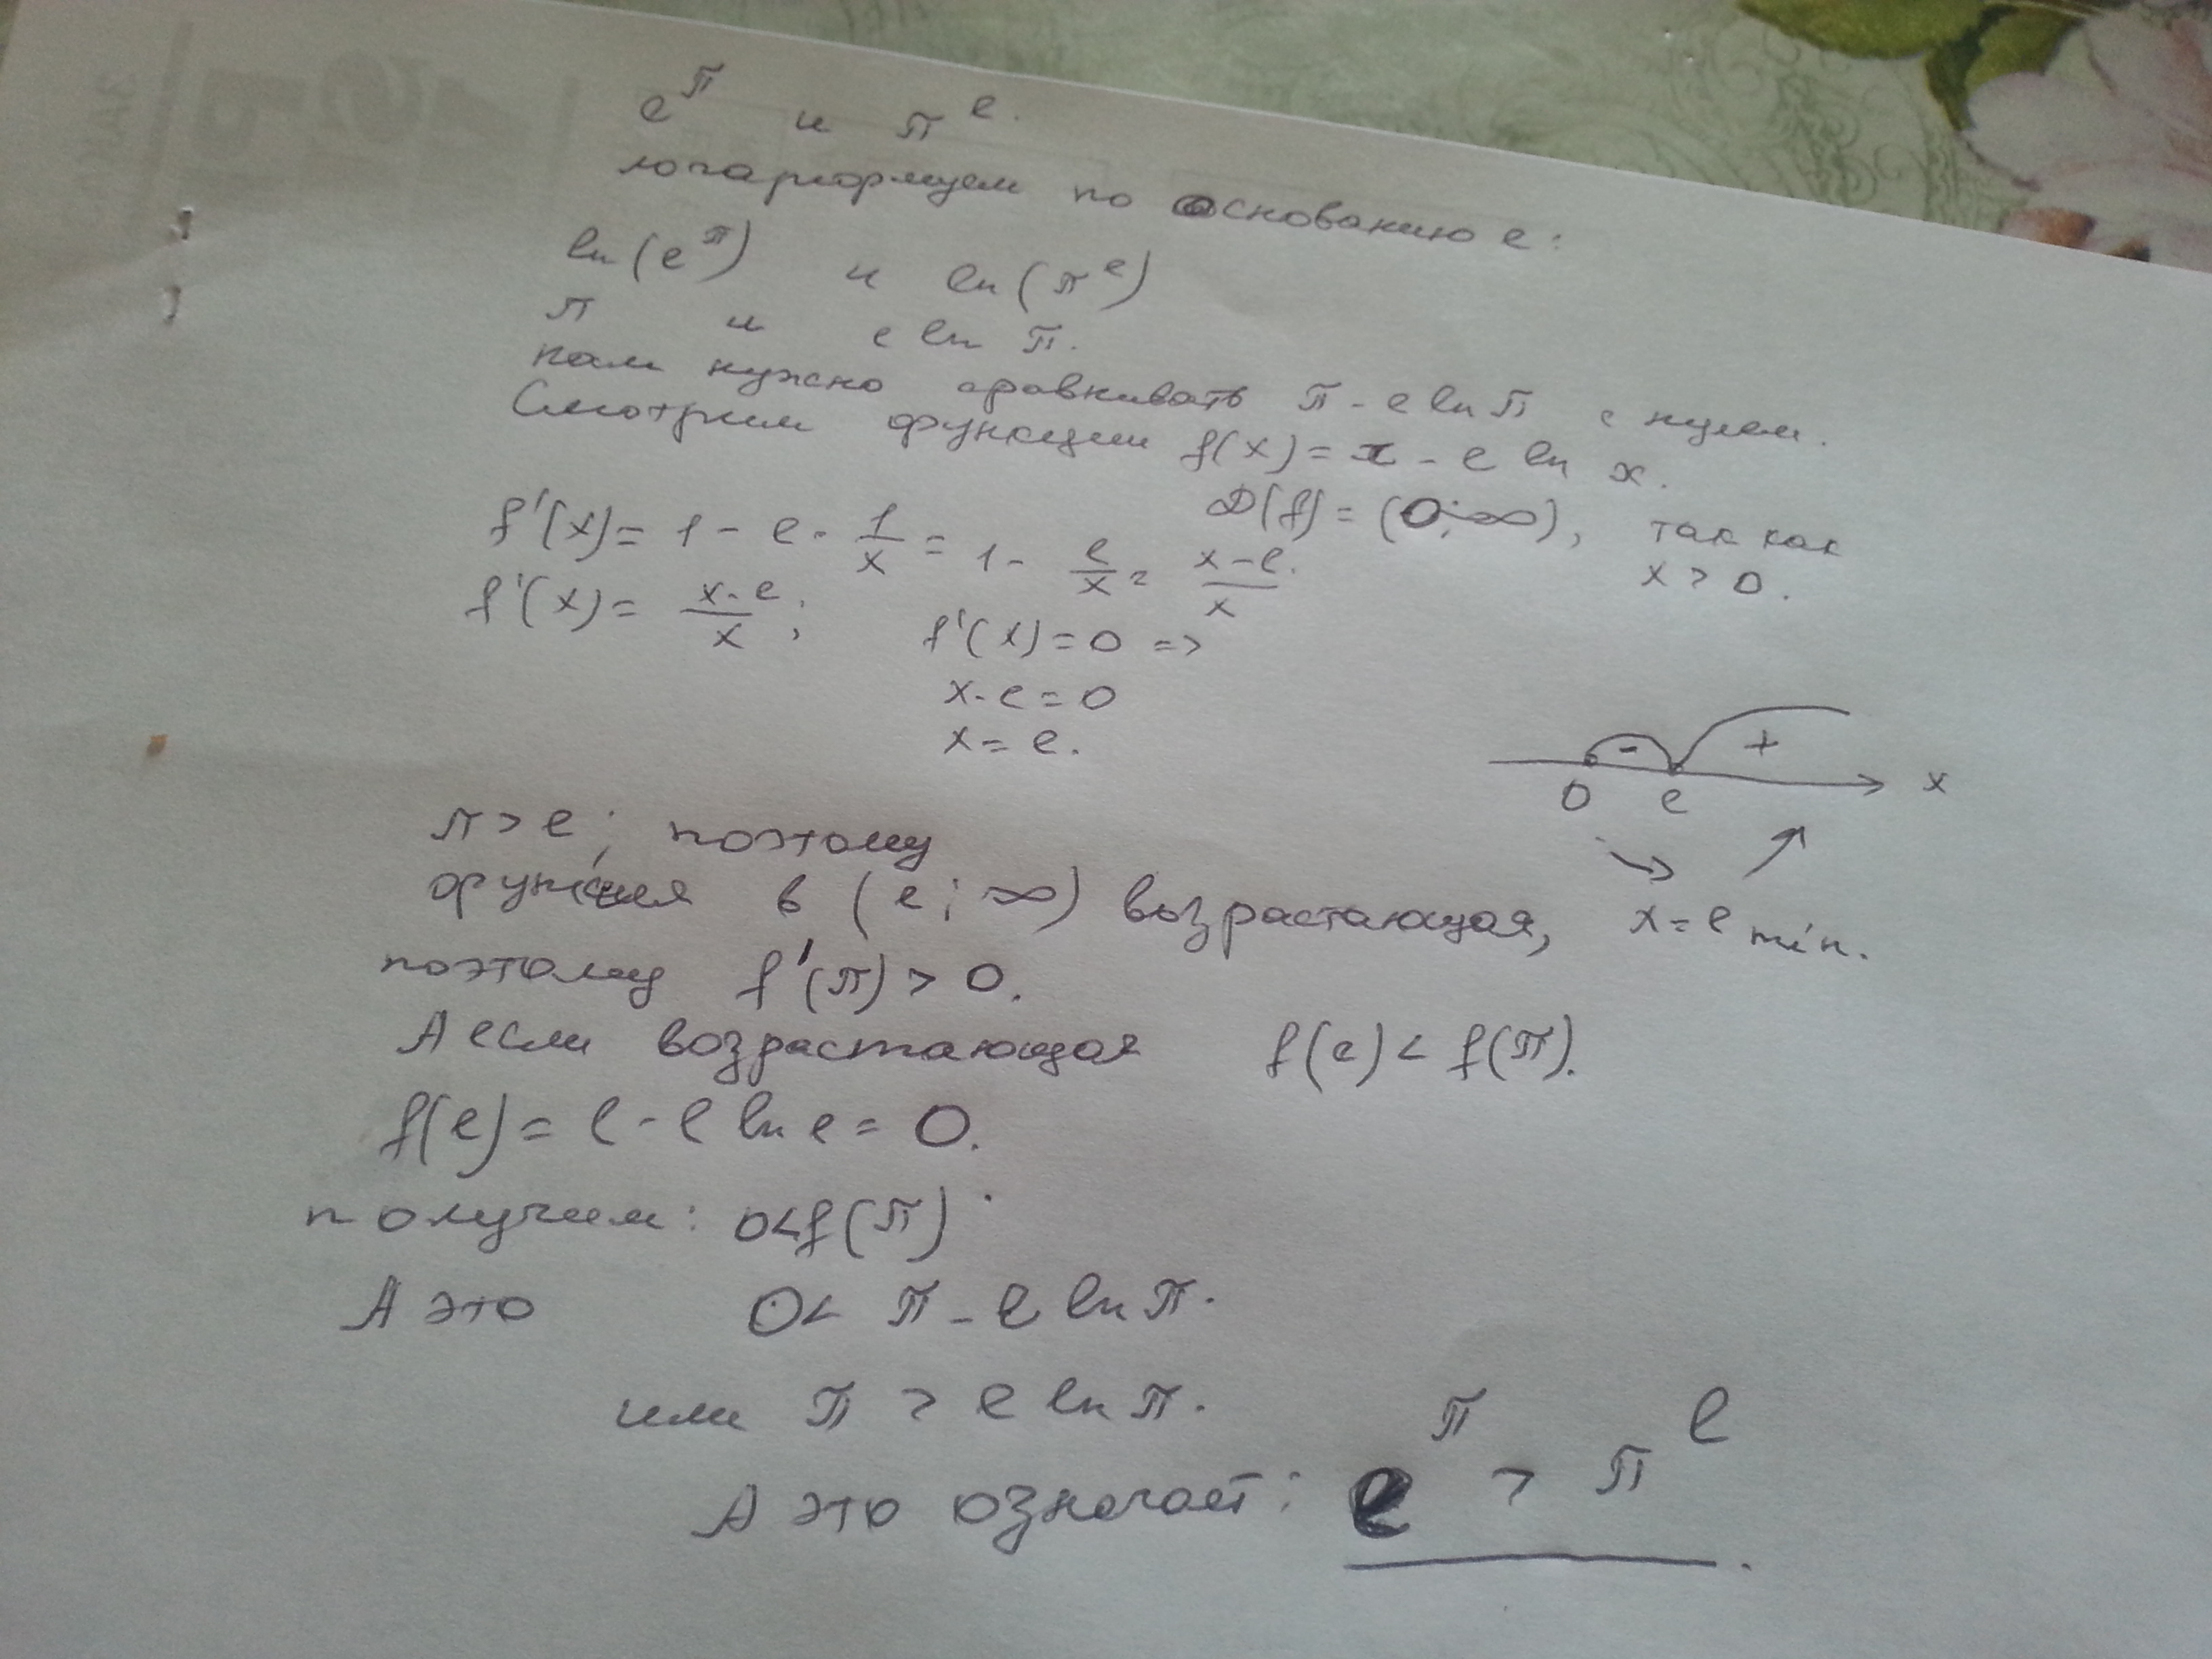 e^π и π^e.
логарифмуем по основанию e:
ln(e^π) и ln(π^e)
π и e ln π.
нам нужно сравнивать π - e ln π с нулем.
Смотрим функции f(x) = x - e ln x.
D(f) = (0; ∞), так как x > 0.
f'(x) = 1 - e · 1/x = 1 - e/x = (x-e)/x.
f'(x) = (x-e)/x; f'(x) = 0 =>
x - e = 0
x = e.
- +
0 e x
x = e min.
π > e; поэтому
функция в (e; ∞) возрастающая,
поэтому f'(π) > 0.
А если возрастающая f(e) < f(π).
f(e) = e - e ln e = 0.
получим: 0 < f(π).
А это 0 < π - e ln π.
или π > e ln π.
А это означает: e^π > π^e.